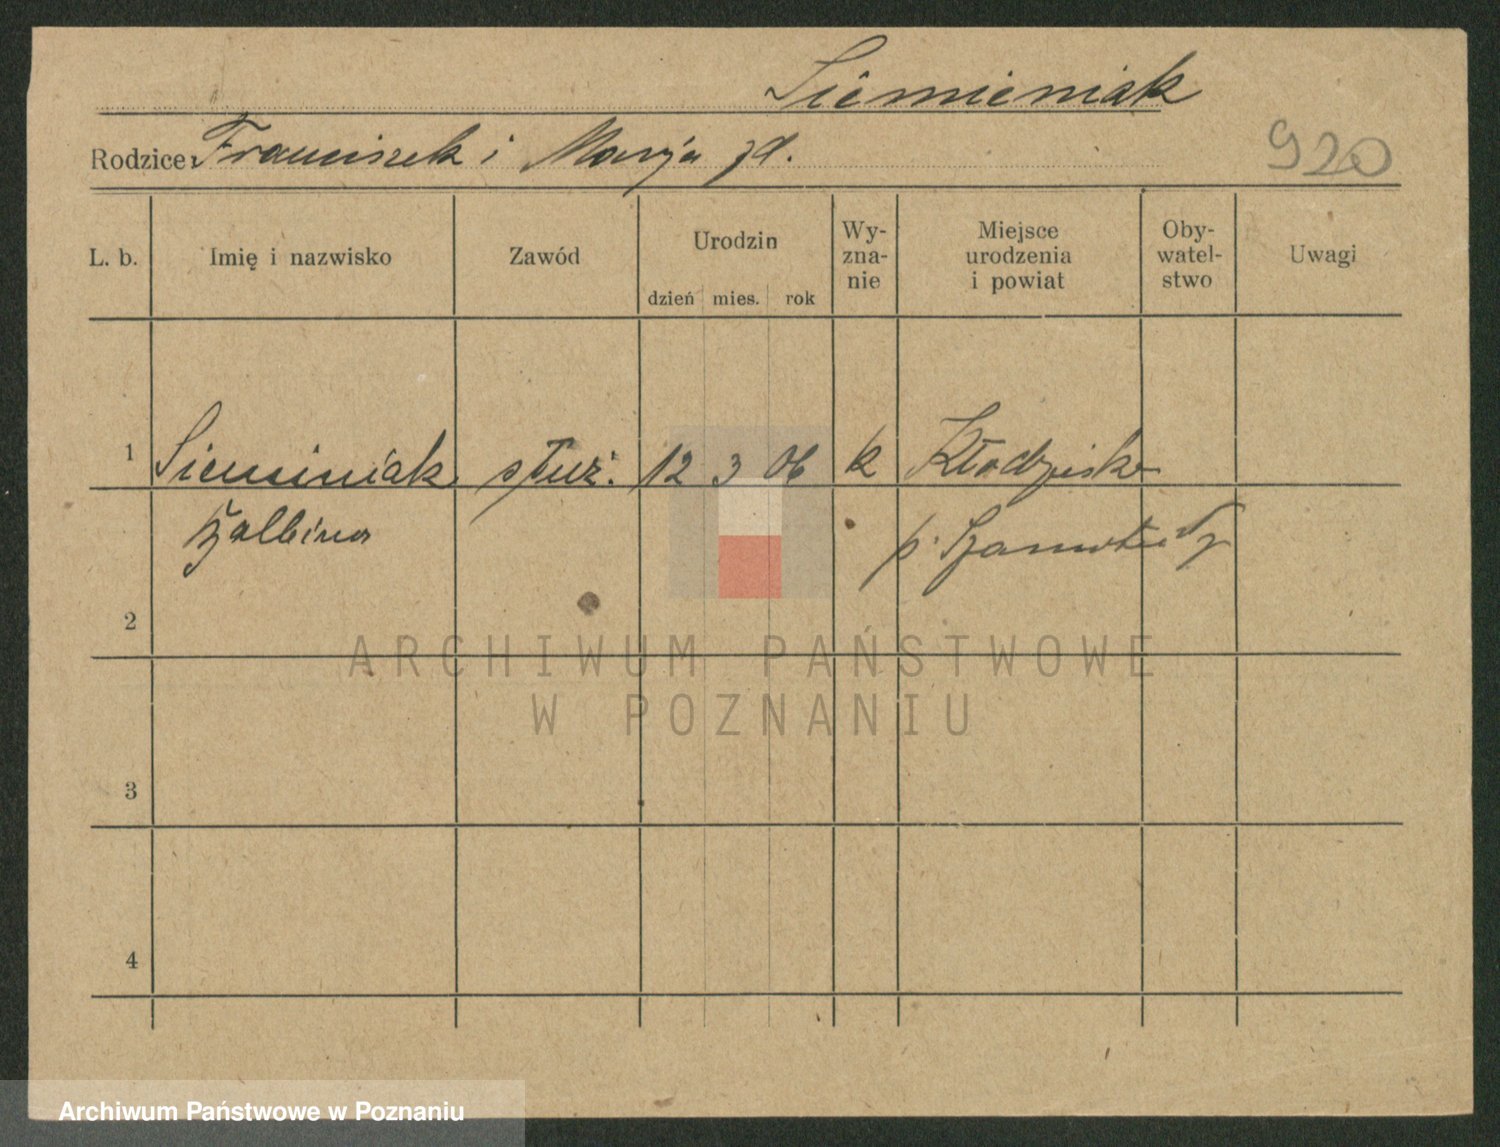 Siemieniak
Rodzice: Franciszek i Marja zd.
920
L. b. Imię i nazwisko Zawód Urodzin Wy-zna-nie Miejsce urodzenia i powiat Oby-watel-stwo Uwagi
dzień mies. rok
1 Siemieniak służ. 12 3 06 k Kłodzisko
Balbina p. Szamotuły
2
ARCHIWUM PAŃSTWOWE
W POZNANIU
3
4
Archiwum Państwowe w Poznaniu